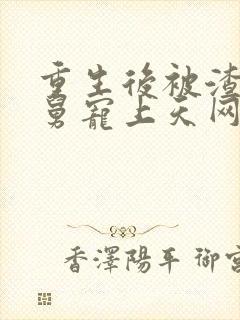 重生後被渣
舅寵上天网
香澤陽平 御宮